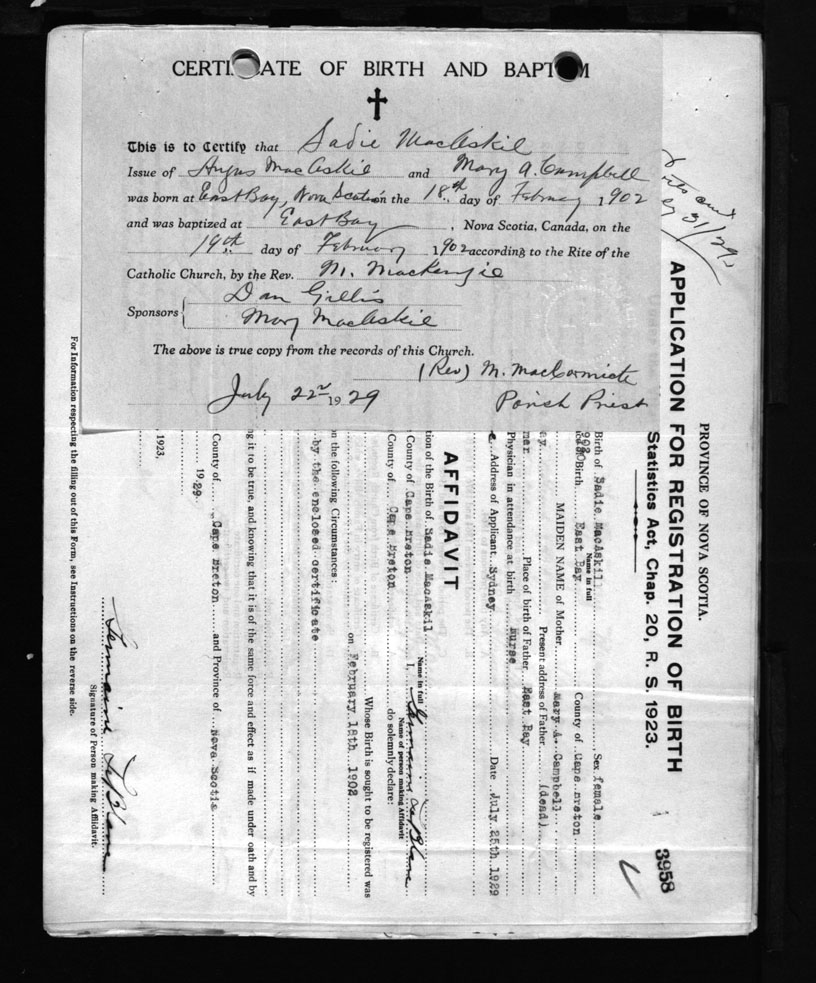 CERTI ATE OF BIRTH AND BAPT M
This is to Certify that Sadie MacAskil
Issue of Angus MacAskil and Mary A. Campbell
was born at East Bay, Nova Scotia on the 18th day of February 1902
and was baptized at East Bay, Nova Scotia, Canada, on the
19th day of February 1902 according to the Rite of the
Catholic Church, by the Rev. M. MacKenzie
Sponsors { Dan Gillis
Mary MacAskil
The above is true copy from the records of this Church.
(Rev) M. MacCormick
July 22nd 1929 Parish Priest
31/29
PROVINCE OF NOVA SCOTIA.
APPLICATION FOR REGISTRATION OF BIRTH
Statistics Act, Chap. 20, R. S. 1923.
3958
Birth of Sadie MacAskill Sex female
Name in full
Birth East Bay County of Cape Breton
MAIDEN NAME of Mother Mary A. Campbell
Present address of Father (dead)
Place of birth of Father East Bay
Physician in attendance at birth Nurse
Address of Applicant Sydney Date July 25th 1929
AFFIDAVIT
tion of the Birth of Sadie MacAskil
Name in full
County of Cape Breton I,
Name of person making Affidavit
County of Cape Breton do solemnly declare:
Whose Birth is sought to be registered was
on February 18th 1902
on the following Circumstances:
by the enclosed certificate
ng it to be true, and knowing that it is of the same force and effect as if made under oath and by
County of Cape Breton and Province of Nova Scotia
1929
1923,
Signature of Person making Affidavit.
For Information respecting the filling out of this Form, see Instructions on the reverse side.